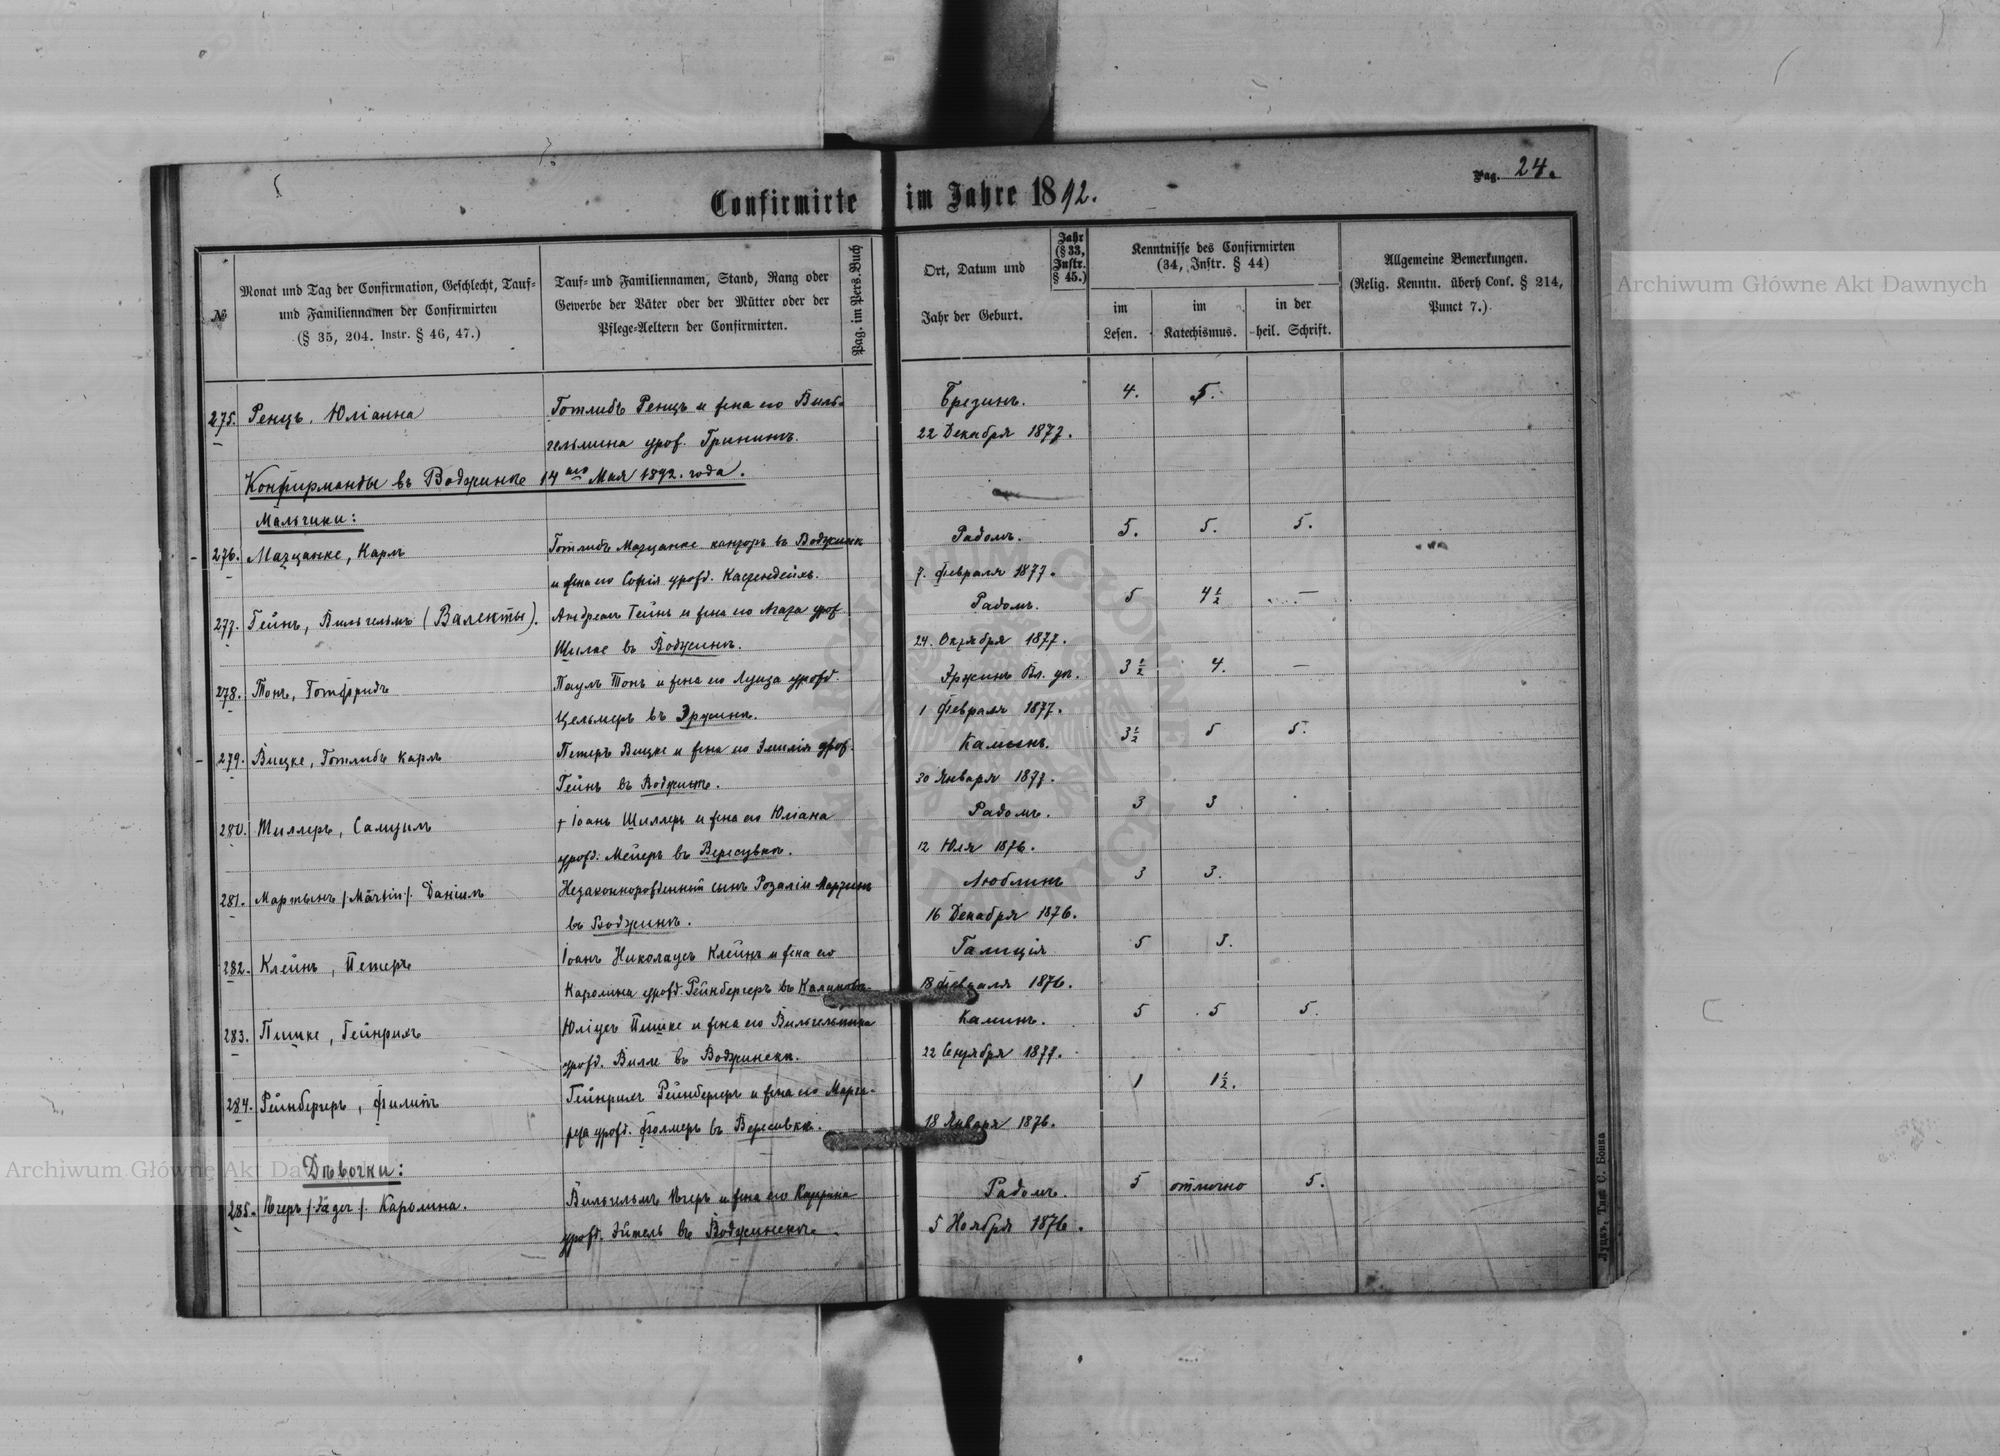 Pag. 24.
Confirmirte im Jahre 1892.
№
Monat und Tag der Confirmation, Geschlecht, Tauf-
und Familiennamen der Confirmirten
(§ 35, 204. Instr. § 46, 47.)
Tauf- und Familiennamen, Stand, Rang oder
Gewerbe der Väter oder der Mütter oder der
Pflege-Aeltern der Confirmirten.
Pag. im Pers. Buch
Ort, Datum und
Jahr der Geburt.
Jahr
(§ 33,
Instr.
§ 45.)
Kenntnisse des Confirmirten
(34, Instr. § 44)
im
Lesen.
im
Katechismus.
in der
heil. Schrift.
Allgemeine Bemerkungen.
(Relig. Kenntn. überh Conf. § 214,
Punct 7.)
275. Ренцъ, Юліанна Готлибъ Ренцъ и жена его Виль- Брезинъ. 4. 5.
гельмина урож. 22 Декабря 1877.
Конфирманды въ Воджинке 14го Мая 1892. года.
Мальчики:
276. Матцанке, Карлъ Готлибъ Матцанке канторъ въ Радомъ. 5. 5. 5.
и жена его Софія урожд. 7. Февраля 1877.
277. Гейнъ, Вильгельмъ (Валенты). Андреасъ Гейнъ и жена его Агата урож Радомъ. 5 4½ —
Шилке въ 24. Октября 1877.
278. Тонъ, Готфридъ Паулъ Тонъ и жена его Луиза урожд. Эржинъ Вл. ув. 3½ 4. —
Цельмеръ въ 1 Февраля 1877.
279. Вицке, Готлибъ Карлъ Петеръ Вицке и жена его Эмилія урож. 3½ 5 5.
Гейнъ въ 30 Января 1877.
280. Шиллеръ, Самуилъ † Іоанъ Шиллеръ и жена его Юліана Радомъ. 3 3
урожд. Мейеръ въ 12 Юля 1876.
281. Мартынъ /Märtin/. Даніилъ Незаконнорожденный сынъ Розаліи Мартинъ Люблинъ 3 3.
въ Воджинъ. 16 Декабря 1876.
282. Клейнъ, Петеръ Іоанъ Николаусъ Клейнъ и жена его Галиція 5 3.
Каролина урожд. Рейнбергеръ въ 18 Февраля 1876.
283. Пишке, Гейнрихъ Юліусъ Пишке и жена его Вильгельмина Калинъ. 5 5 5.
урожд. Вилле въ Воджинска. 22 Сентября 1877.
284. Рейнбергеръ, Филипъ Гейнрихъ Рейнбергеръ и жена его Марга- 1 1½.
рета урожд. Фолмеръ въ 18 Января 1876.
Дѣвочки:
285. Егеръ /Jäger/. Каролина. Вильгельмъ Егеръ и жена его Катрина Радомъ. 5 отлично 5.
урожд. Эйтель въ 5 Ноября 1876.
Луцкъ, Тип С. Бонка
Archiwum Główne Akt Dawnych
Archiwum Główne Akt Dawnych